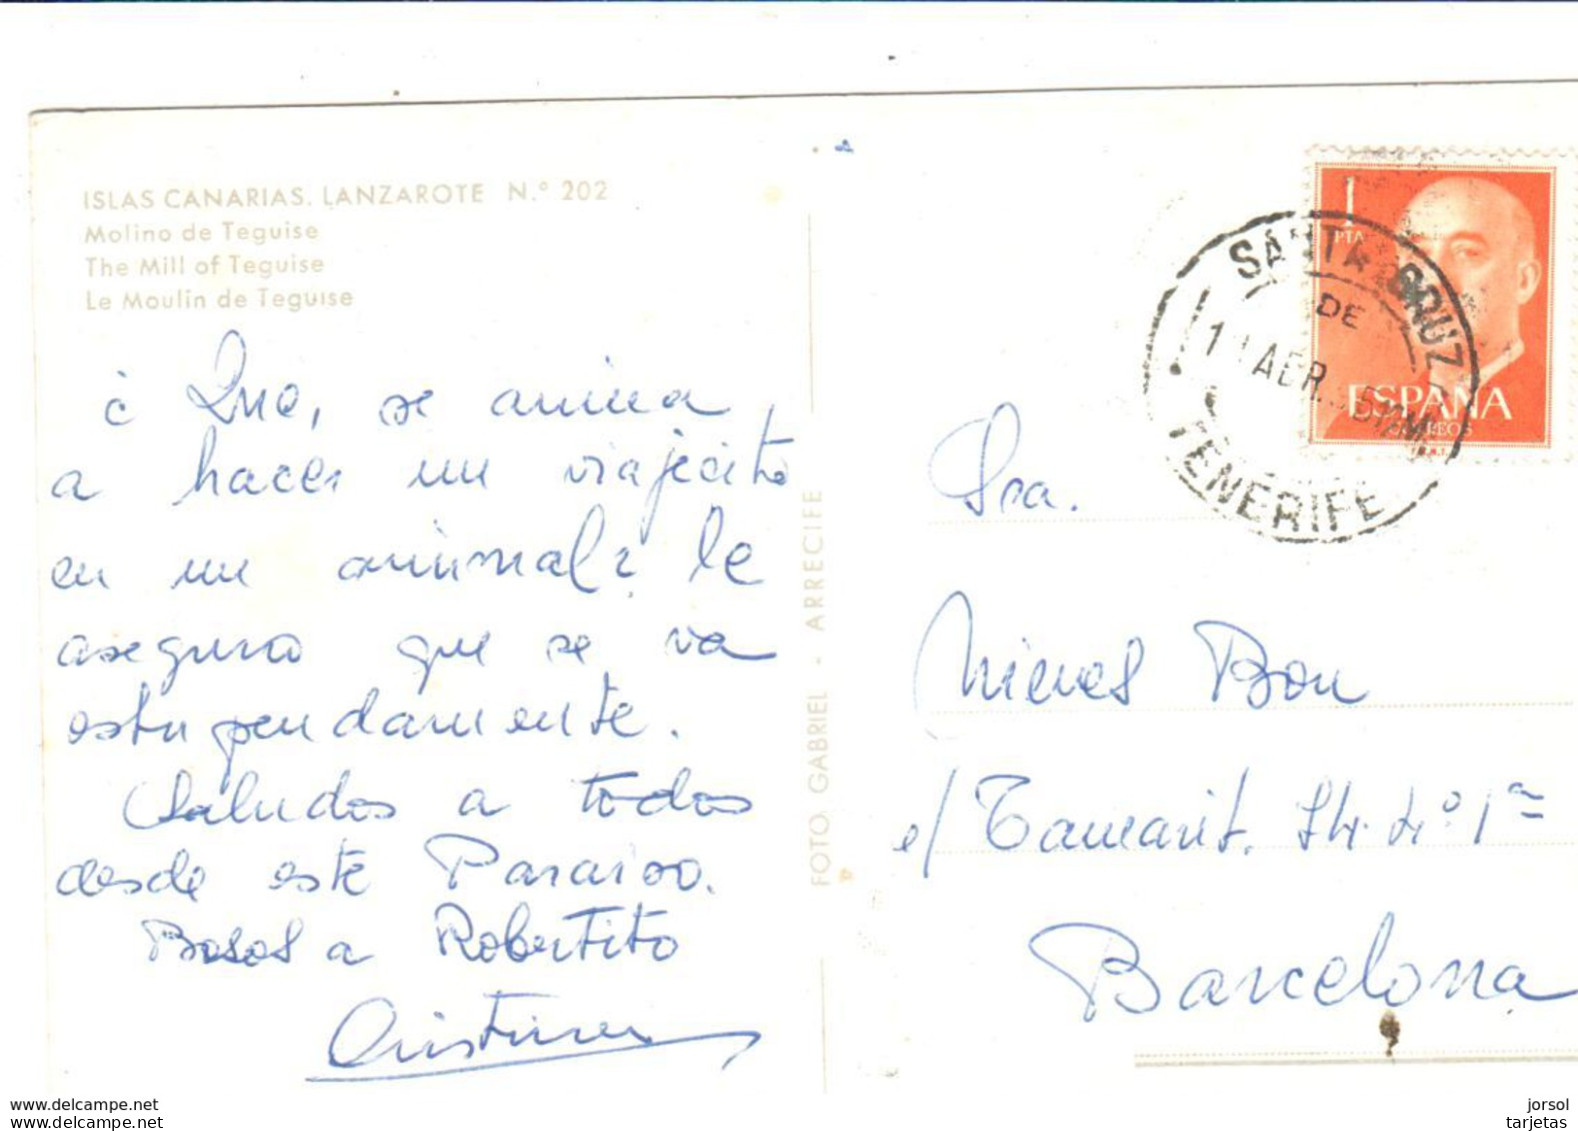 ISLAS CANARIAS. LANZAROTE N.º 202
Molino de Teguise
The Mill of Teguise
Le Moulin de Teguise
¿ Que, se anima
a hacer un viajecito
en un animal? le
aseguro que se va
estupendamente.
Saludos a todos
desde este Paraiso.
Besos a Robertito
Cristina
FOTO GABRIEL - ARRECIFE
1 PTA
ESPAÑA
CORREOS
SANTA CRUZ
DE
ABR.
TENERIFE
Sra.
Nieves Bou
c/ Tamarit. 4º 1ª
Barcelona
www.delcampe.net
www.delcampe.net
jorsol
tarjetas